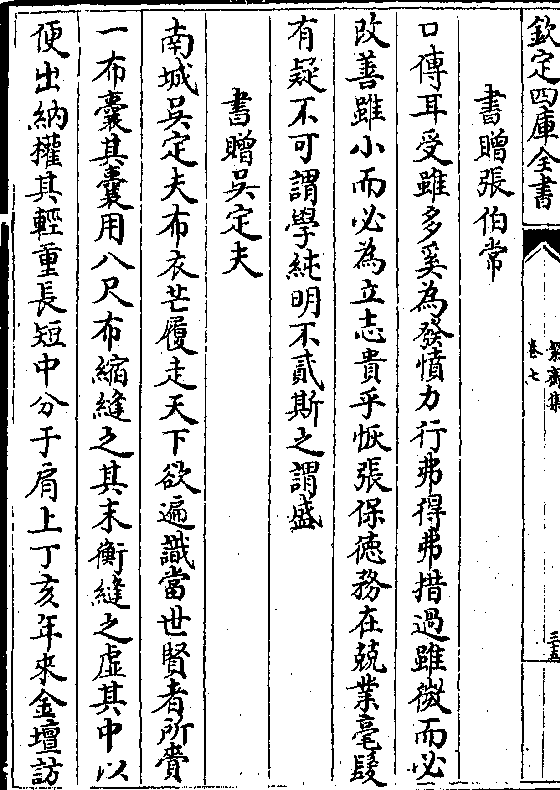 欽定四庫全書
卷七
三五
書贈張伯常
口傳耳受雖多奚為發憤力行弗得弗措過雖微而必
改善雖小而必為立志貴乎恢張保德務在兢業毫髮
有疑不可謂學純明不貳斯之謂盛
書贈吳定夫
南城吳定夫布衣芒履走天下欲遍識當世賢者所賫
一布囊其囊用八尺布縮縫之其末衡縫之虛其中以
便出納權其輕重長短中分于肩上丁亥年來金壇訪